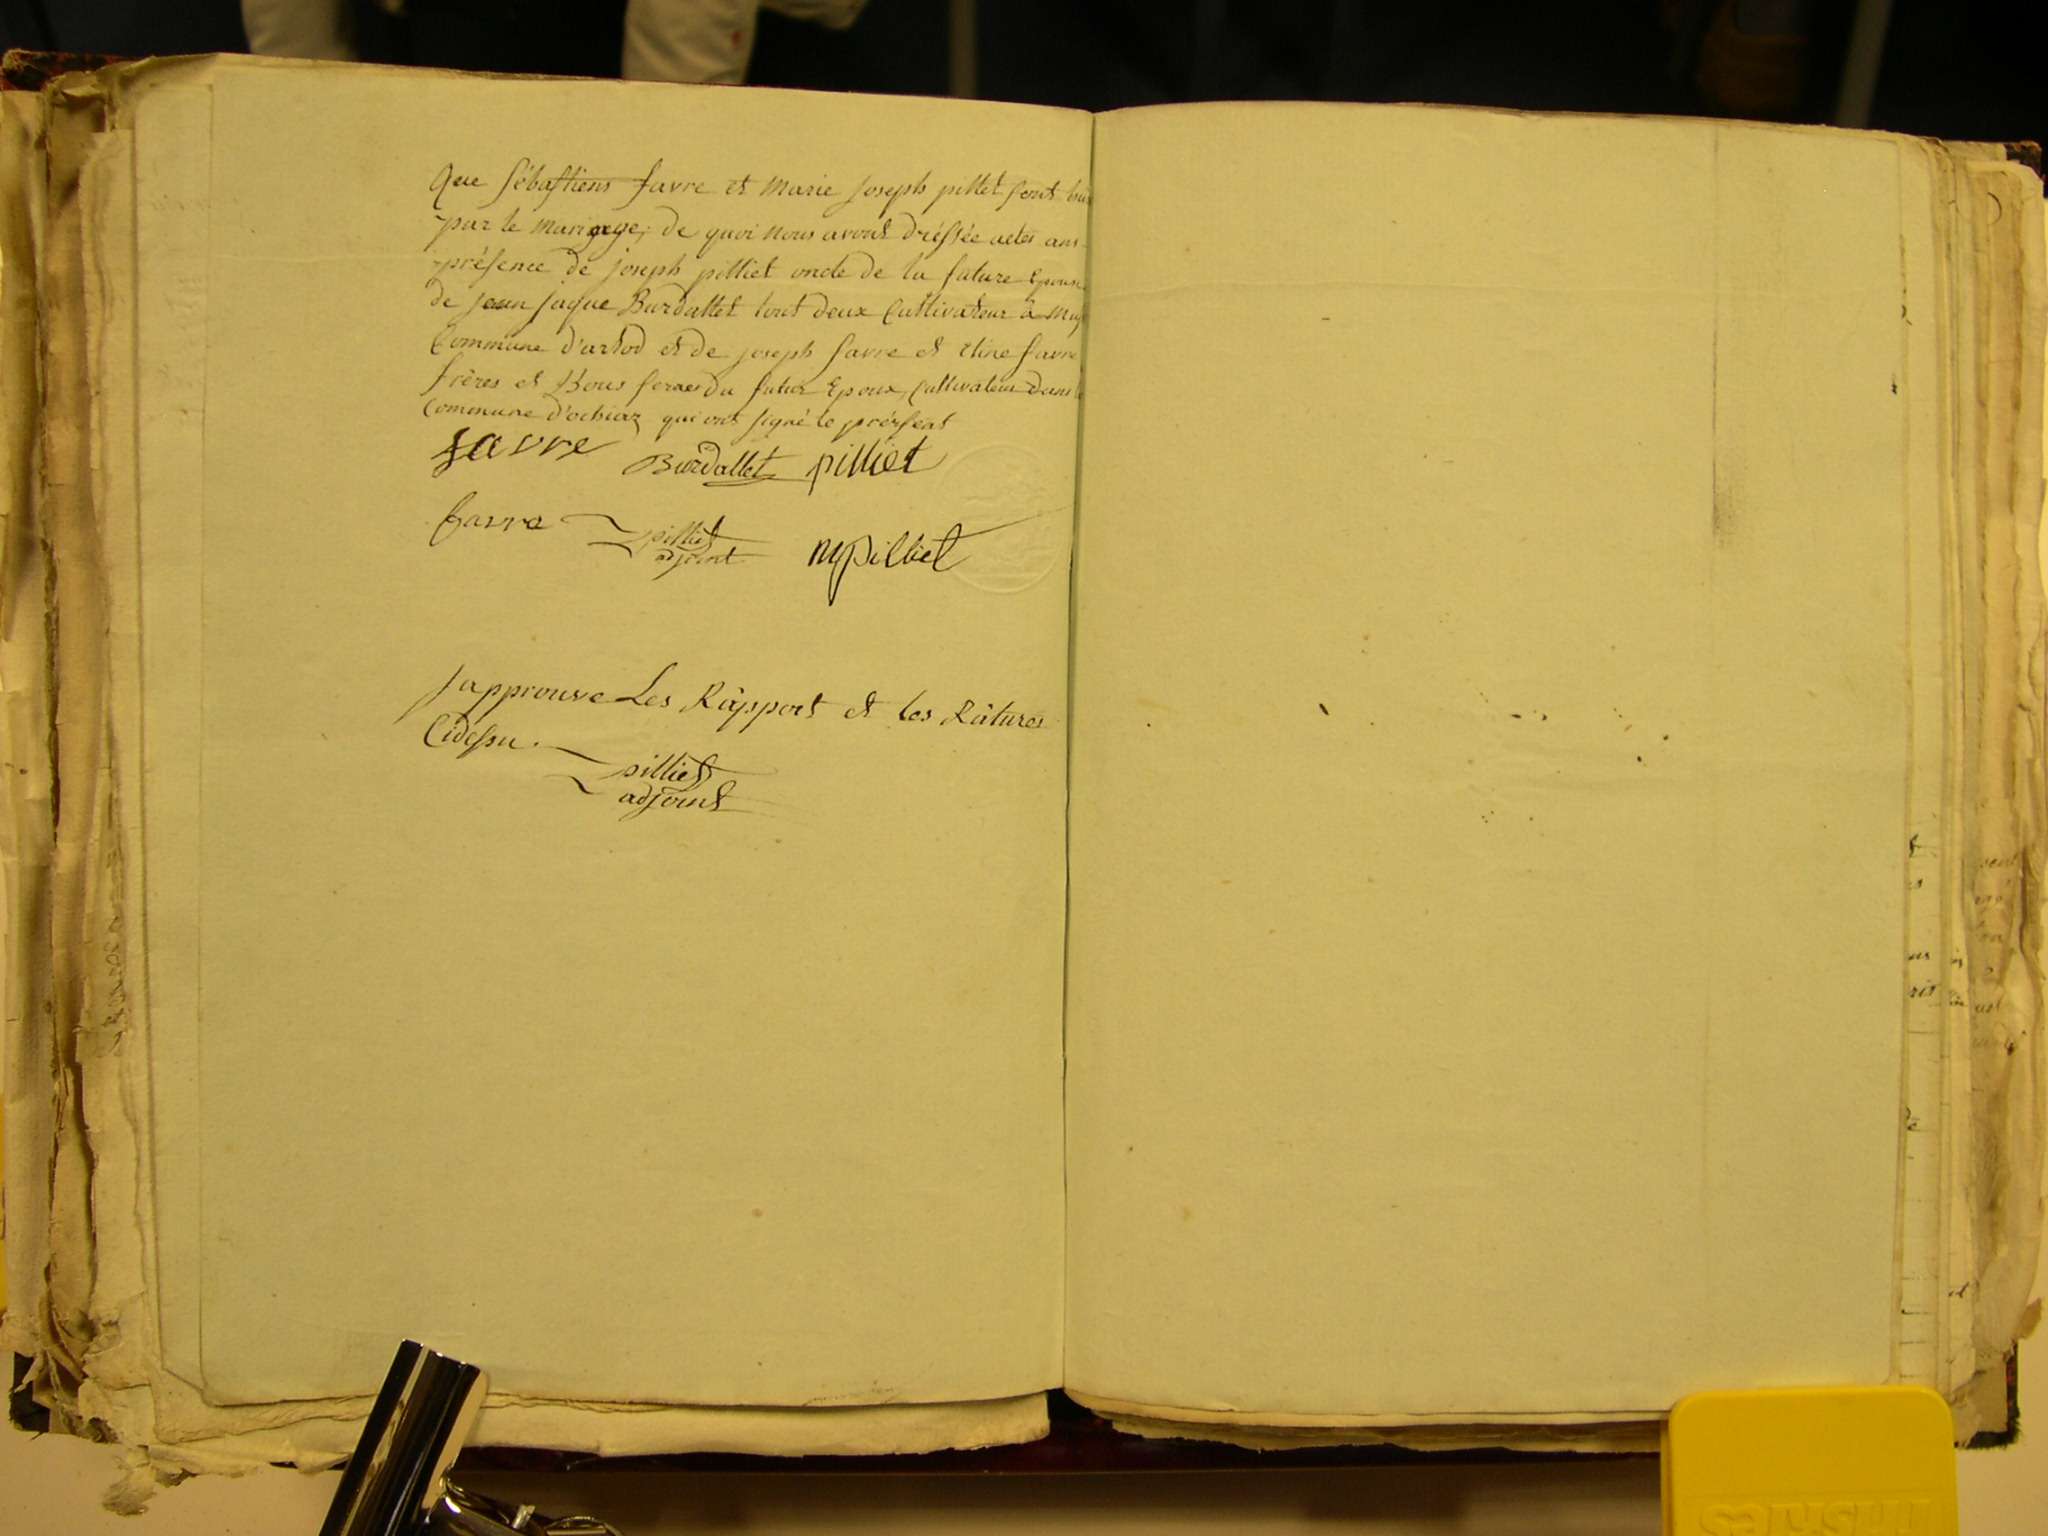 Que Sébastiens favre et Marie Joseph pillet sont
par le mariage, de quoi nous avons dréssée actes
présence de Joseph pilliet oncle de la future Epouse
de jean jaque Burdallet tout deux Cultivateur à
Commune d'arlod et de joseph favre et favre
frères et du futur Epoux, Cultivateur dans
Commune d'ochiaz qui ont signé le présent
favre Burdallet pilliet
favre pilliet mjpilliet
adjoint
Japprouve Les Râpport et les Râtures
Cidessu.
pilliet
adjoint